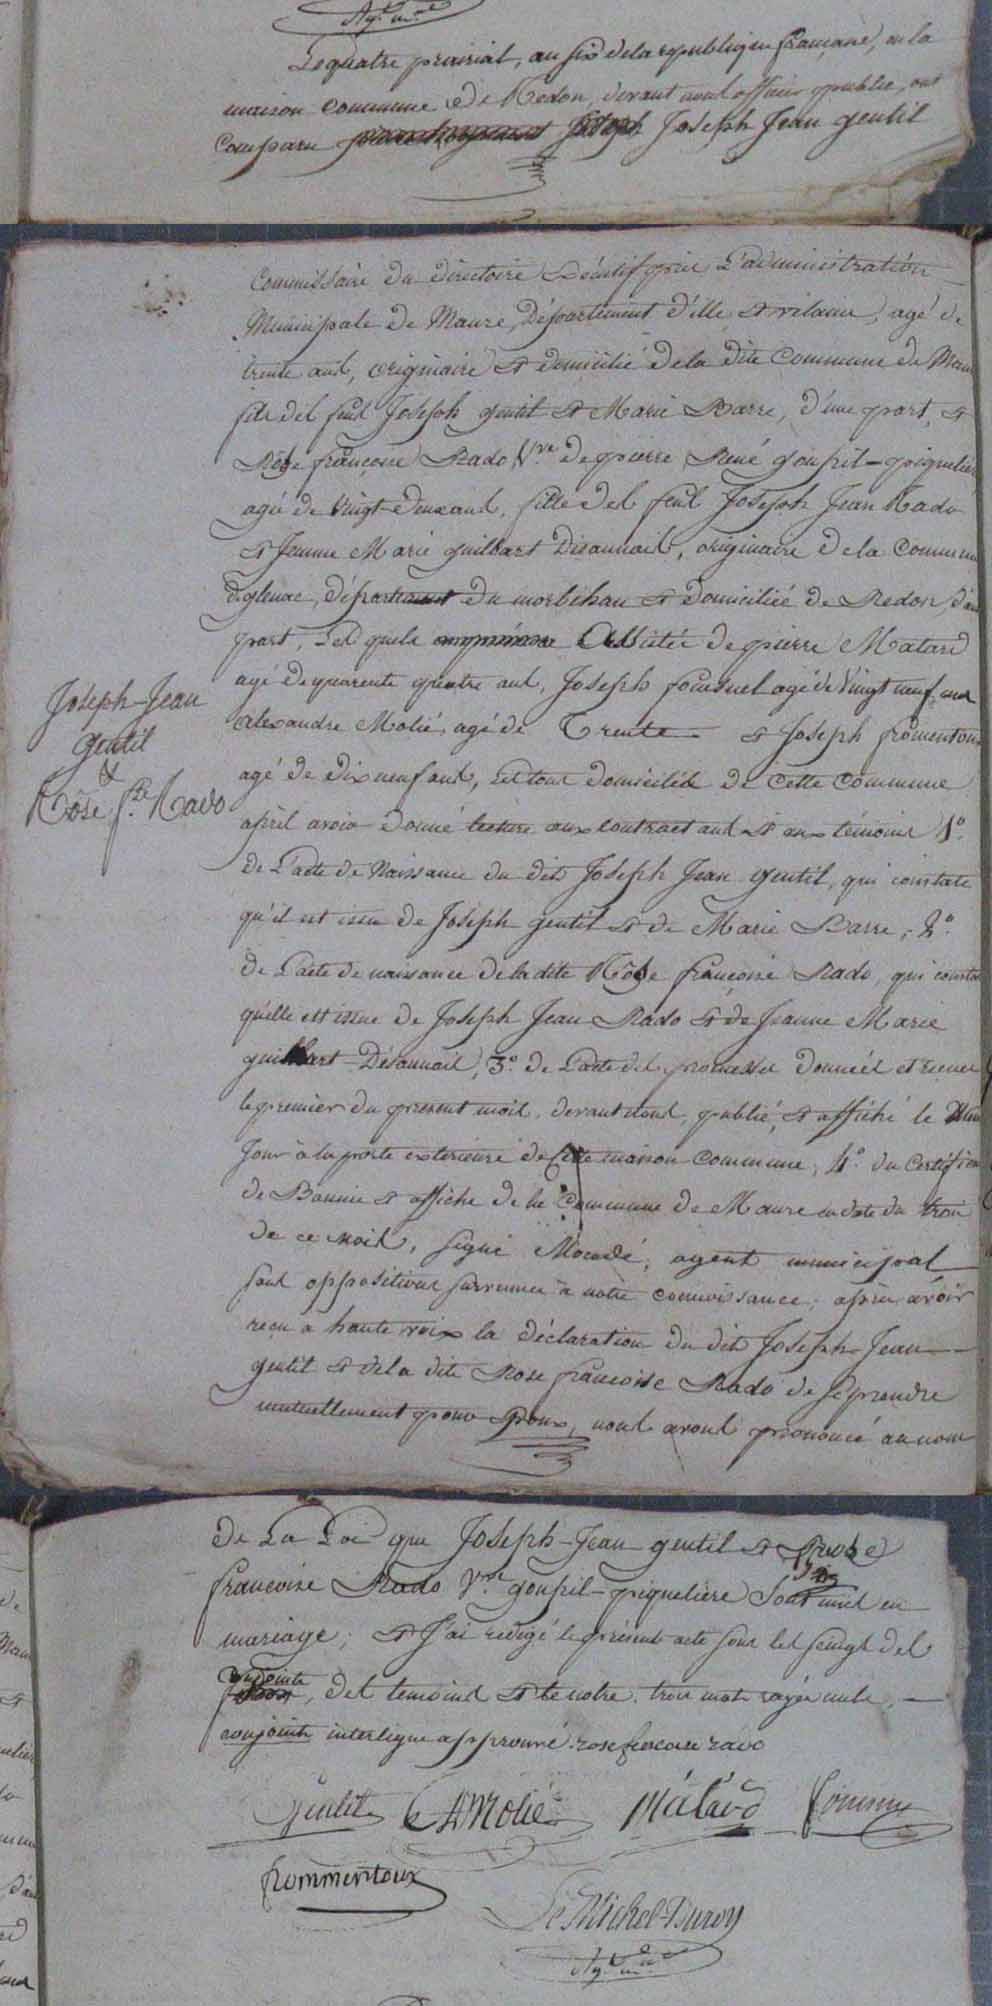 Agt mal
Le quatre prairial, an six de la republique française, en la
maison commune de Redon, devant nous officier public, ont
comparu Joseph Joseph Jean gentil
Commissaire du directoire Exécutif près L'administration
Municipale de Maure, Département d'ille et vilaine, agé de
trente ans, originaire et domicilié de la dite Commune de Maure
fils des feus Joseph gentil et Marie Barre, d'une part, et
Rose françoise Rado Vve de pierre René goupil-priqueliere
agée de Vingt-deux ans, fille des feus Joseph Jean Rado
et Jeanne Marie guilbart Désaunais, originaire de la Commune
de glenac, département du morbihan et domiciliée de Redon, d'autre
part, Les quels Assistés de pierre Matard
agé de quarante quatre ans, Joseph fouesnel agé de Vingt neuf ans
alexandre Molié, agé de Trente et Joseph fromentoux
agé de dix neuf ans, Les tous domiciliés de cette commune
Joseph-Jean
gentil
&
Rose fse Rado
après avoir donné lecture aux contractans et aux témoins 1°.
de l'acte de Naissance du dit Joseph Jean gentil, qui constate
qu'il est issu de Joseph gentil et de Marie Barre, 2°.
de l'acte de naissance de la dite Rose françoise Rado, qui constate
qu'elle est issue de Joseph Jean Rado et de Jeanne Marie
guilbart-Désaunais, 3°. de l'acte des promesses données et reçues
le premier du présent mois, devant nous, publié, et affiché le même
Jour à la porte extérieure de Cette maison commune, 4°. du Certificat
de Bannie et affiche de la Commune de Maure en date du trois
de ce mois, signé agent municipal
sans opposition survenue à notre connoissance; après avoir
reçu à haute voix la déclaration du dit Joseph-Jean
gentil et de la dite Rose françoise Rado de se prendre
mutuellement pour Epoux, nous avons prononcé au nom
de La Loi que Joseph-Jean gentil et Rose
françoise Rado Vve goupil-priqueliere Sont unis en
mariage; et J'ai redigé le présent acte sous les seings des
conjoints, des temoins et le notre. trois mots rayés nuls,
conjoints interligne approuvé. rose francoise rado
Gentil AMolié Matard
frommentoux
Le Michel-Duroy
Agt mal